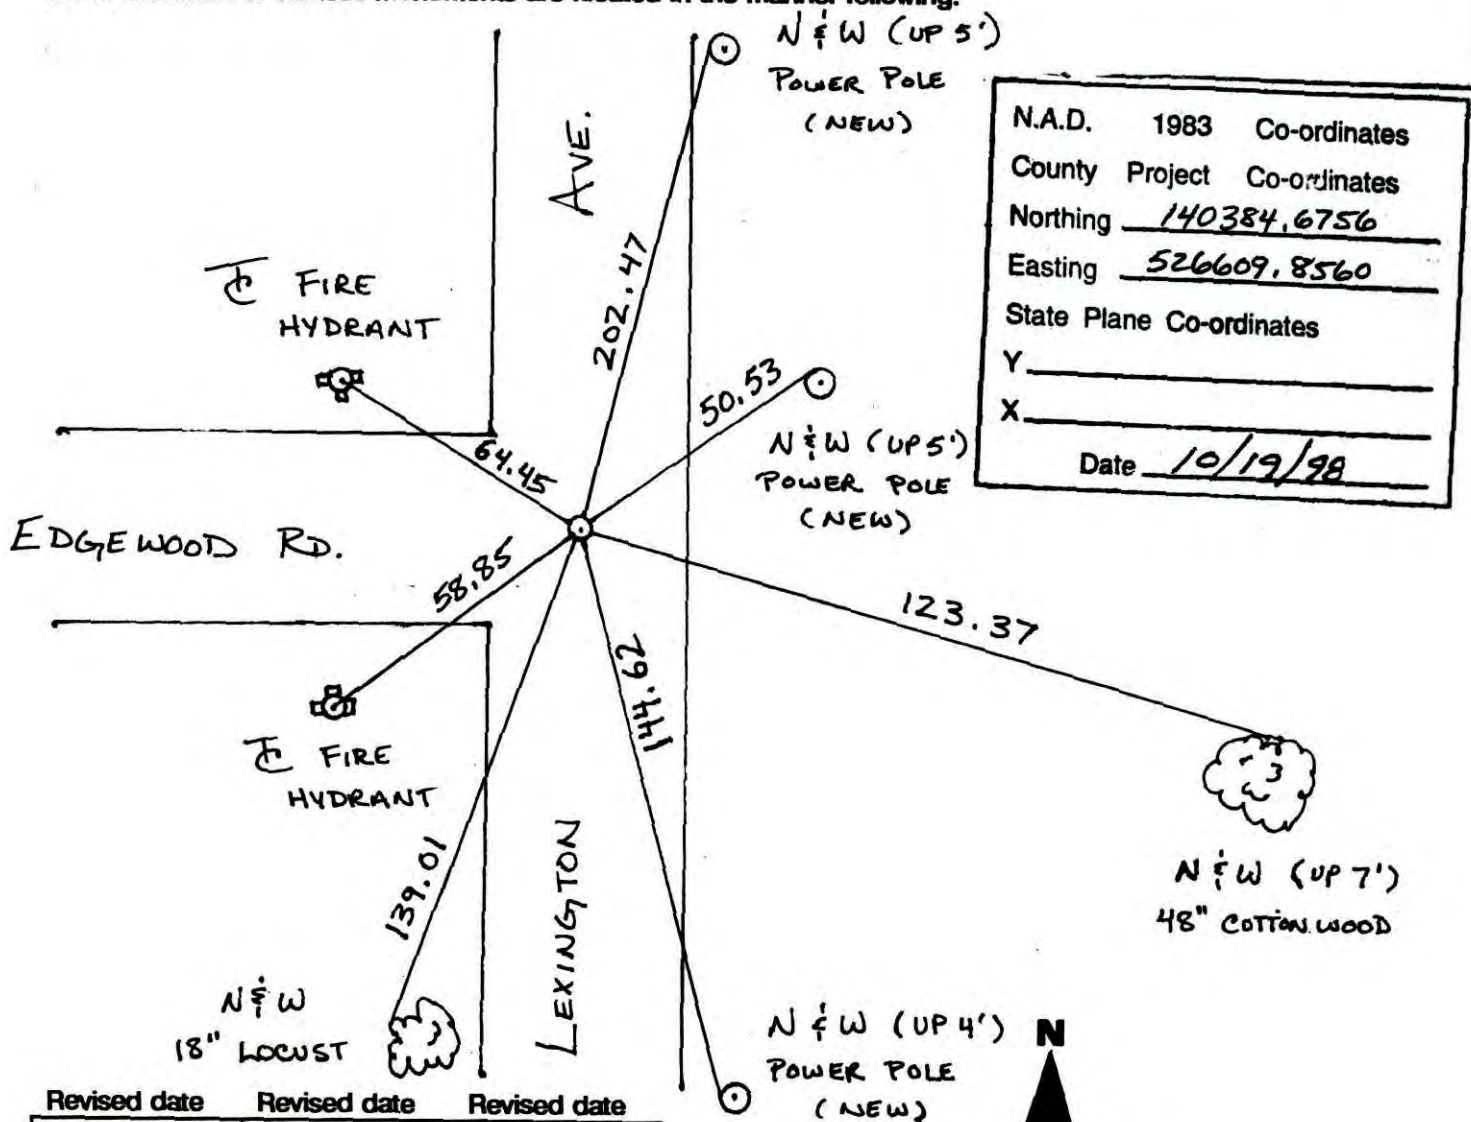 N & W (UP 5')
POWER POLE
(NEW)
AVE.
N.A.D. 1983 Co-ordinates
County Project Co-ordinates
Northing 140384.6756
Easting 526609.8560
State Plane Co-ordinates
Y
X
Date 10/19/98
FIRE
HYDRANT
202.47
50.53
64.45
N & W (UP 5')
POWER POLE
(NEW)
EDGEWOOD RD.
58.85
123.37
144.62
FIRE
HYDRANT
139.01
LEXINGTON
N & W (UP 7')
48" COTTON WOOD
N & W
18" LOCUST
N & W (UP 4')
POWER POLE
(NEW)
N
Revised date Revised date Revised date